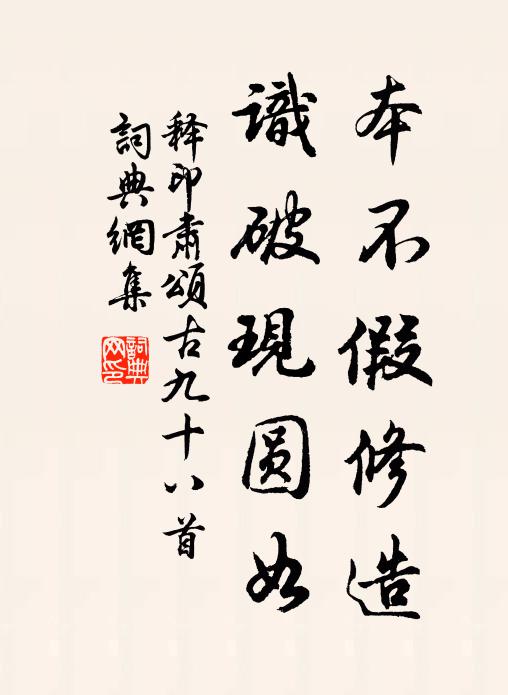 本不假修造
識破現圆如
释印肃頌古九十八首
詞典網集
詞典网印